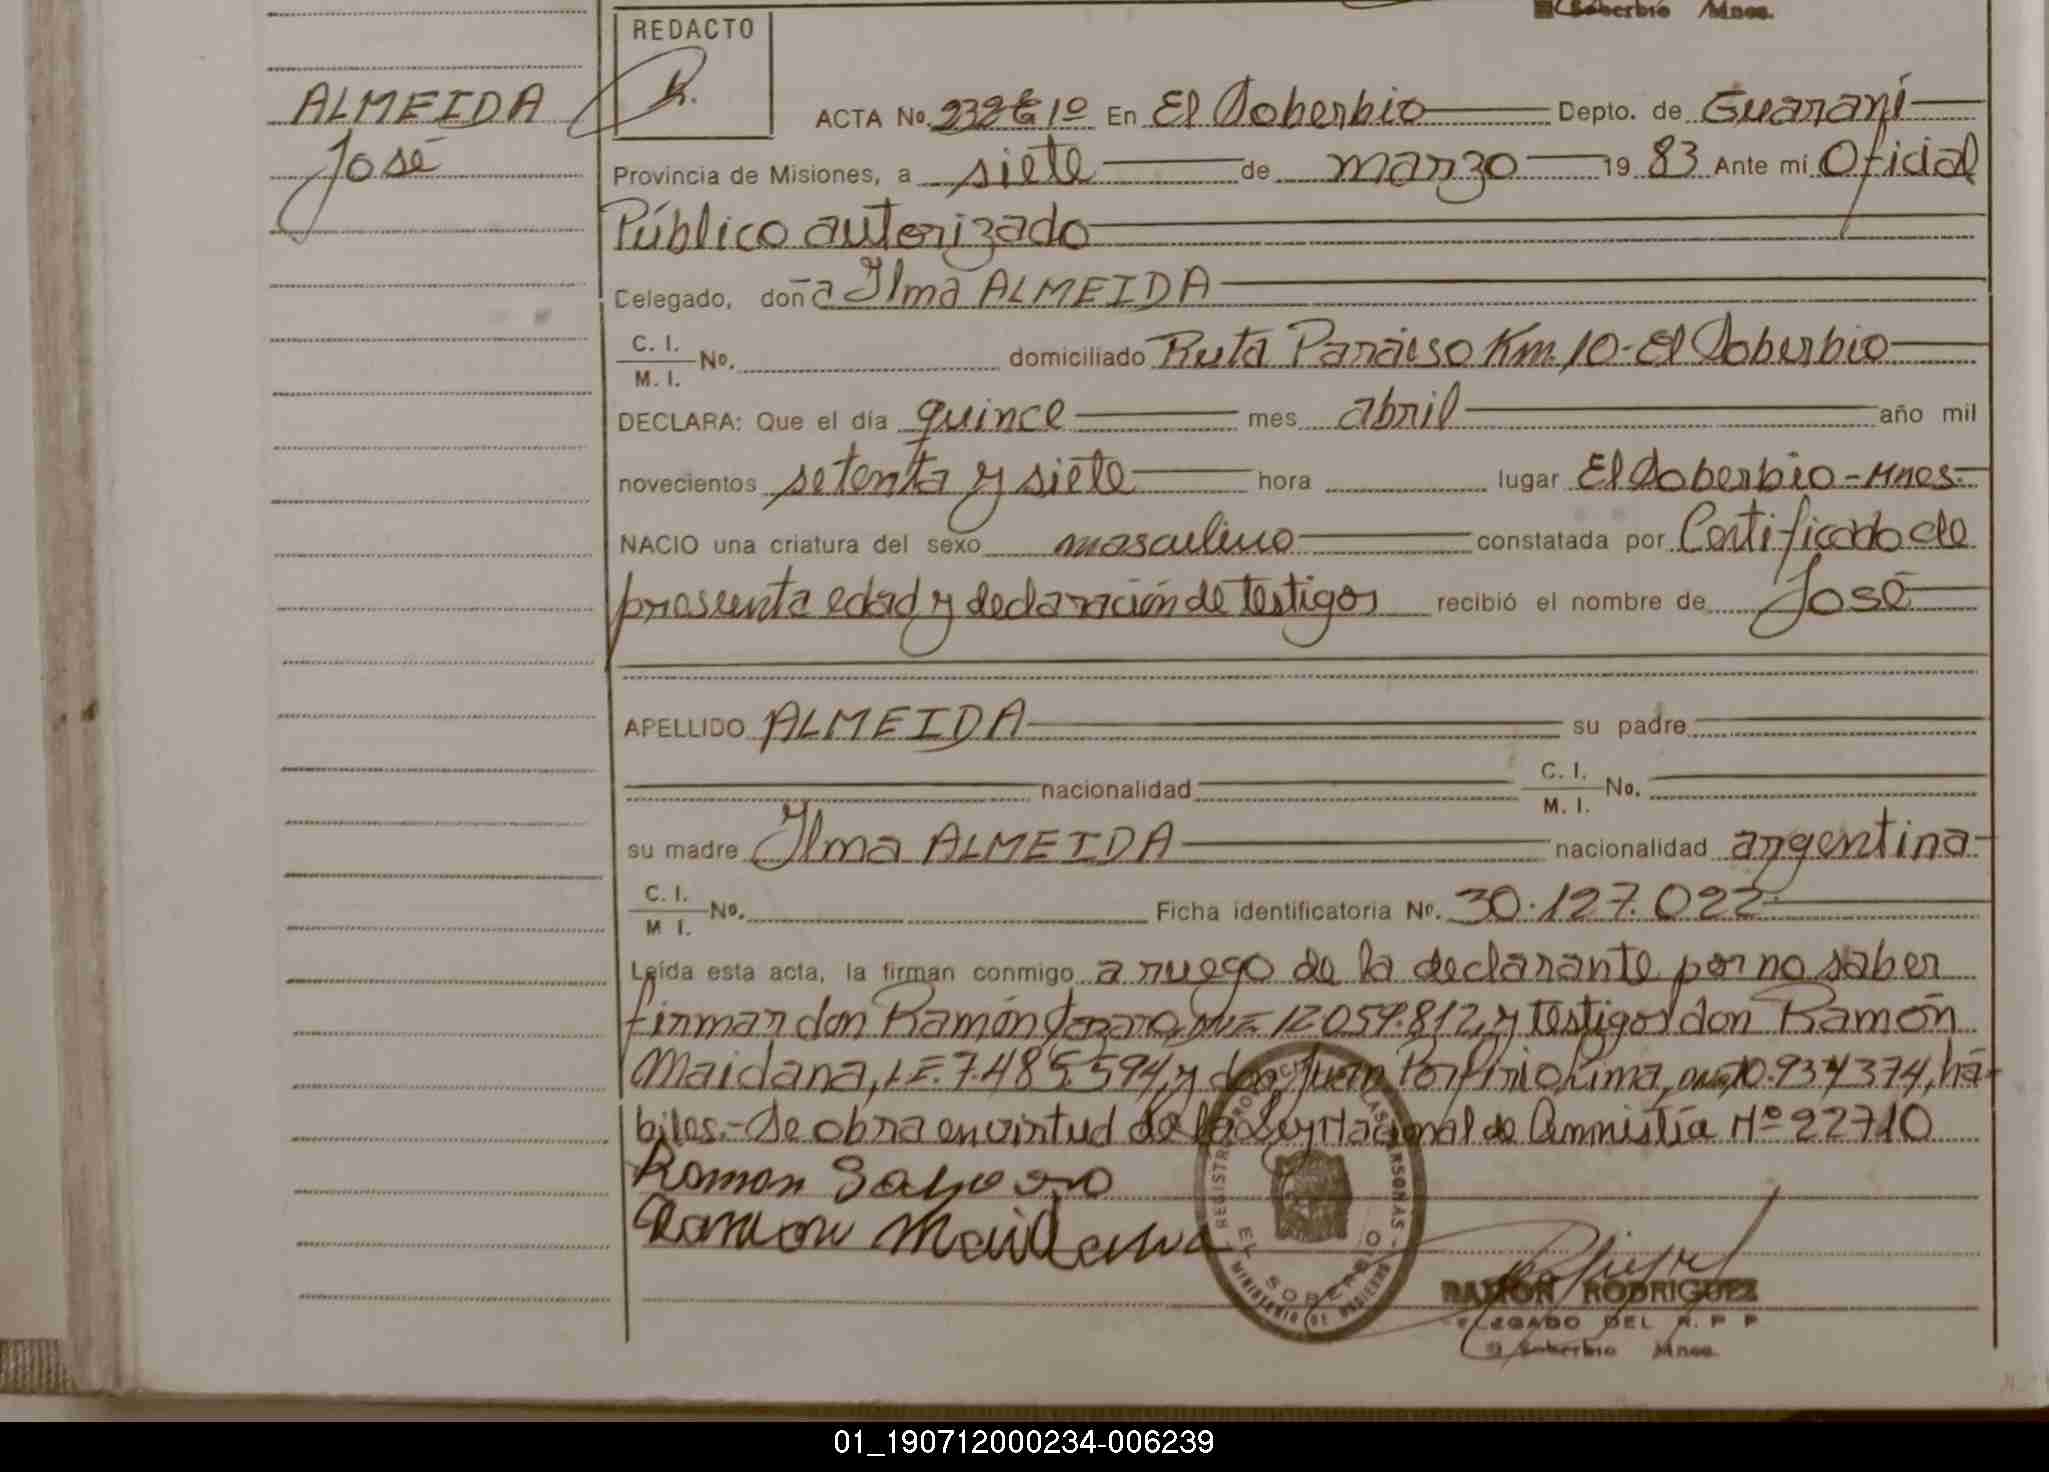 El Soberbio Mnes.
REDACTO
ALMEIDA
José
ACTA No. 232 tº 1º En El Soberbio Depto. de Guaraní
Provincia de Misiones, a siete de marzo 19 83 Ante mí Oficial
Público autorizado
Celegado, doña Ilma ALMEIDA
C. I.
M. I. No. domiciliado Ruta Paraiso Km. 10 - El Soberbio
DECLARA: Que el día quince mes abril año mil
novecientos setenta y siete hora lugar El Soberbio - Mnes.
NACIO una criatura del sexo masculino constatada por Certificado de
presunta edad y declaración de testigos recibió el nombre de José
APELLIDO ALMEIDA su padre
nacionalidad C. I.
M. I. No.
su madre Ilma ALMEIDA nacionalidad argentina
C. I.
M I. No. Ficha identificatoria No. 30.127.022
Leída esta acta, la firman conmigo a ruego de la declarante por no saber
firmar don Ramón 12.059.812, y testigos don Ramón
Maidana, L.E. 7.485.594, y don Juan Porfirio Lima, 10.934374, há-
biles.- Se obra en virtud de la Ley Nacional de Amnistía Nº 22710
Ramon
Ramon Maidana
REGISTRO PROVINCIAL DE LAS PERSONAS
EL SOBERBIO
MINISTERIO DE GOBIERNO
RAMON RODRIGUEZ
DELEGADO DEL R. P P
El Soberbio Mnes.
01_190712000234-006239